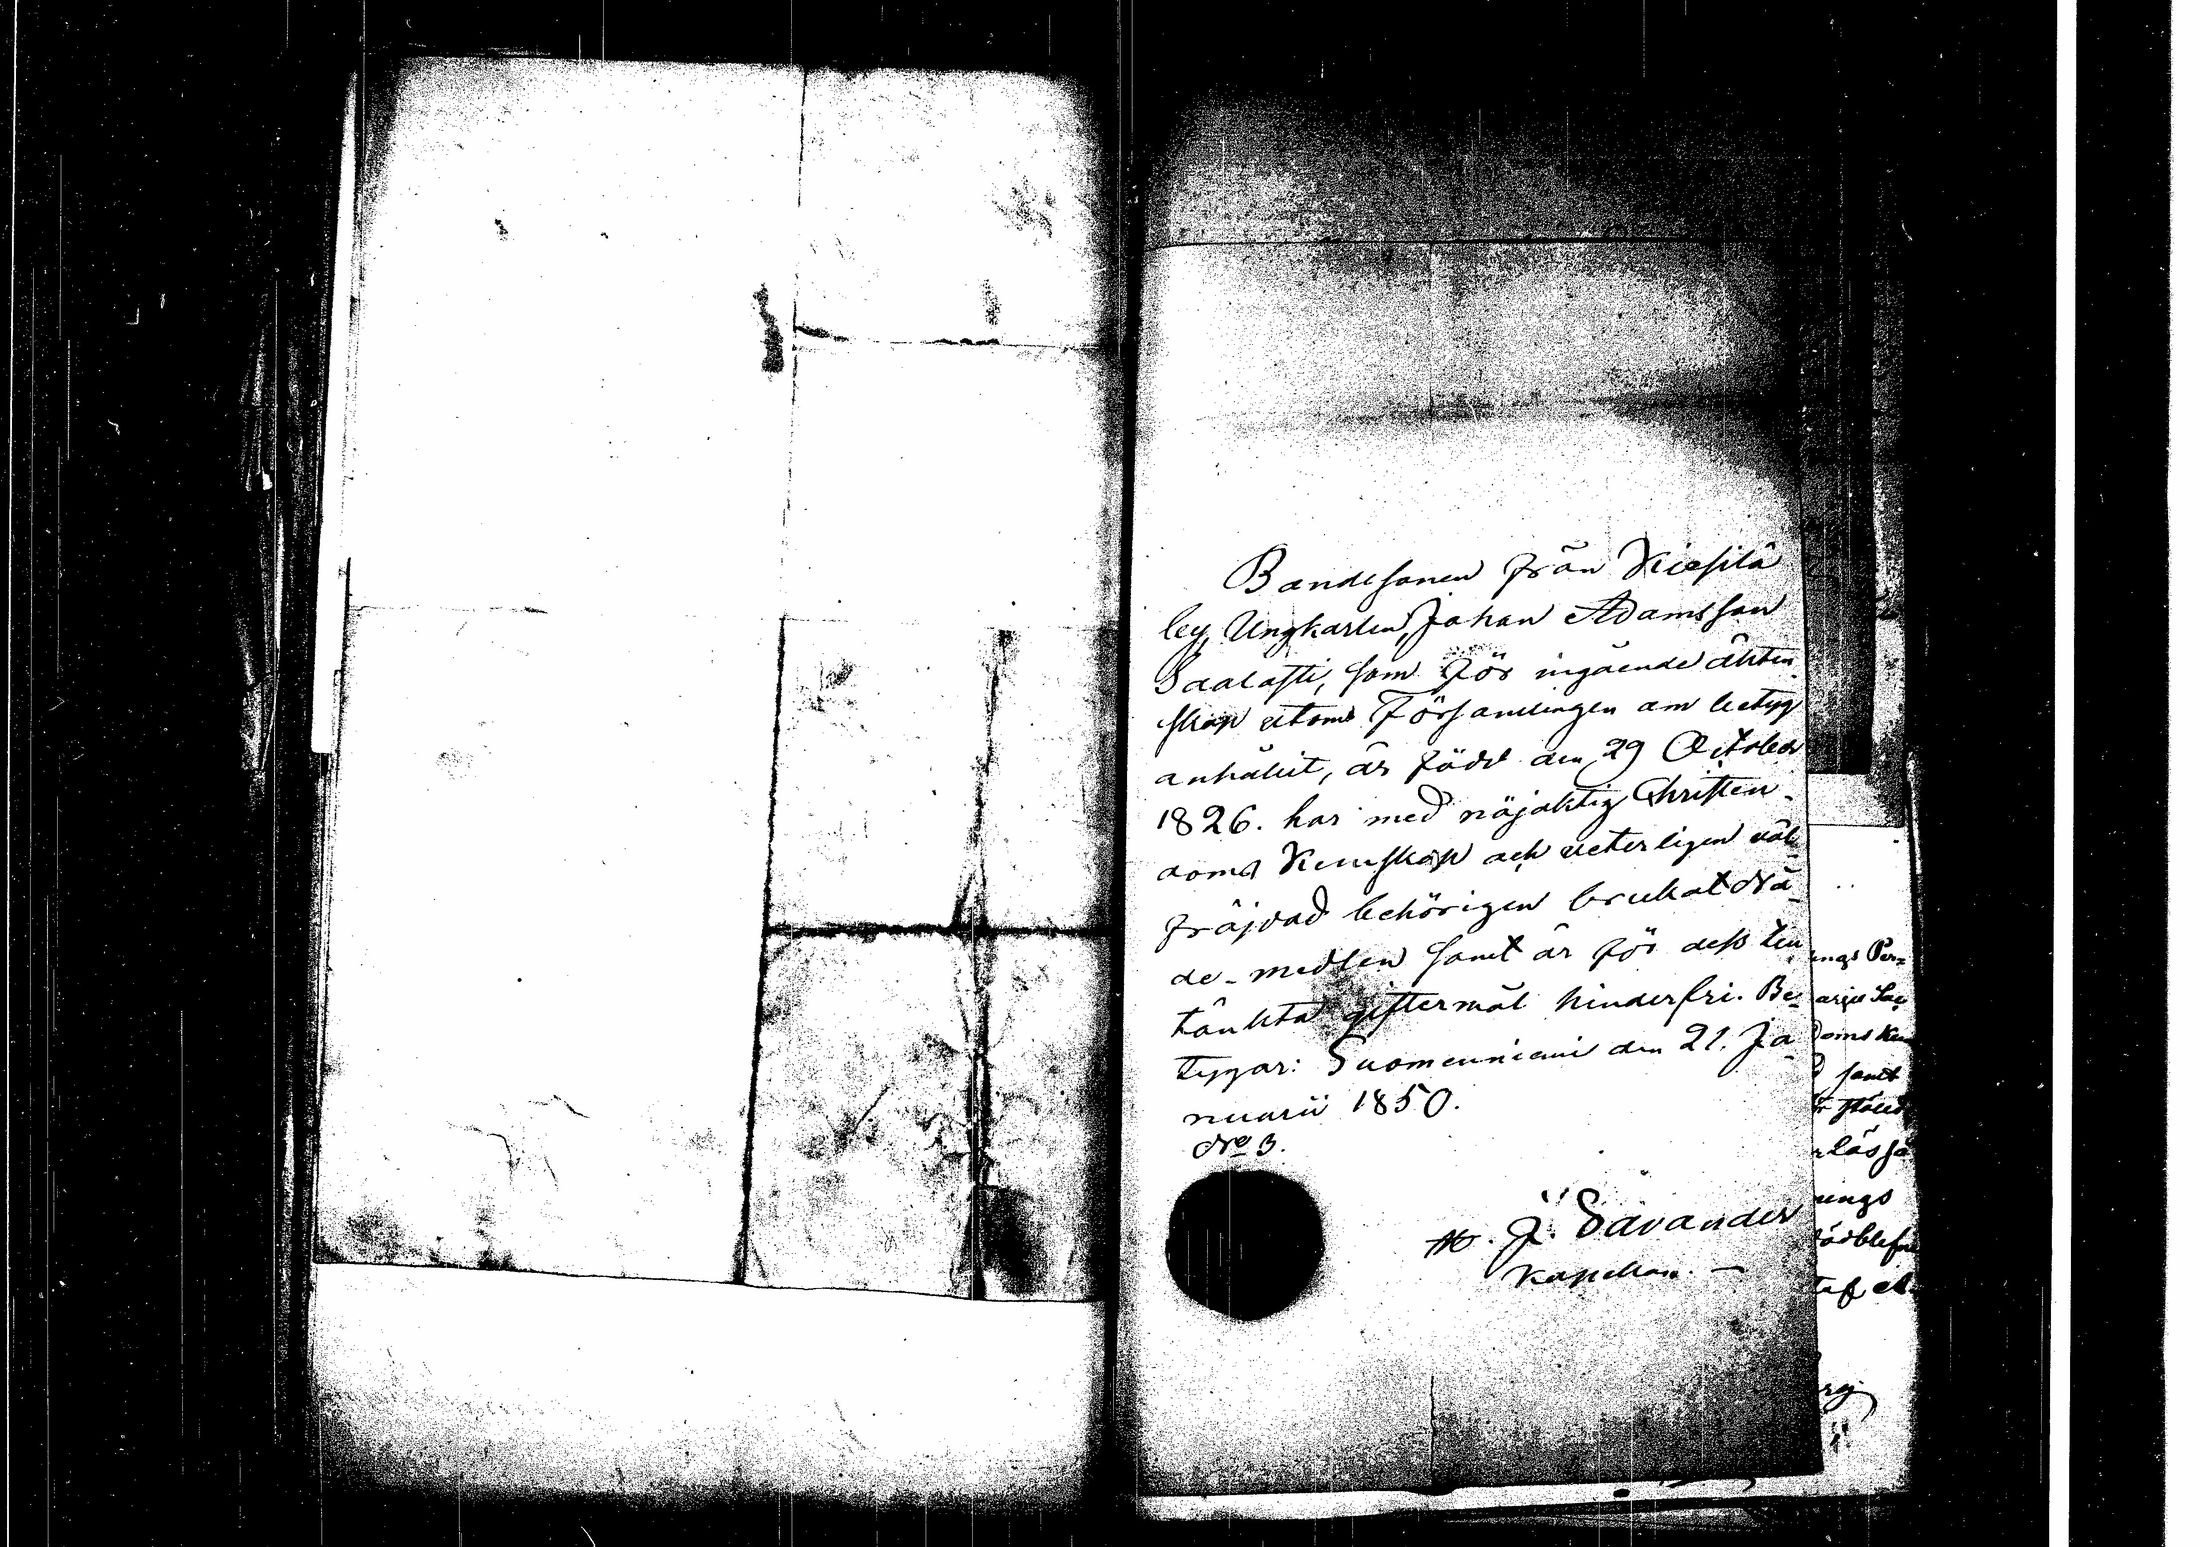 Bondesonen från Kiesilä
by, Ungkarlen, Johan Adamsson
Saalasti, som för ingående äkten-
skap utom Församlingen om betyg
anhållit, är född den 29 October
1826. har med nöjaktig Christen-
doms Kunskap och veterligen väl-
fräjdad behörigen brukat Nå-
de-medlen samt är för dess till-
tänkta giftermål hinderfri. Be-
tygar: Suomenniemi den 21. Ja-
nuarii 1850.
No 3.
J. Savander
Kapellan.
ungs Per=
doms Kun
samt
ungs